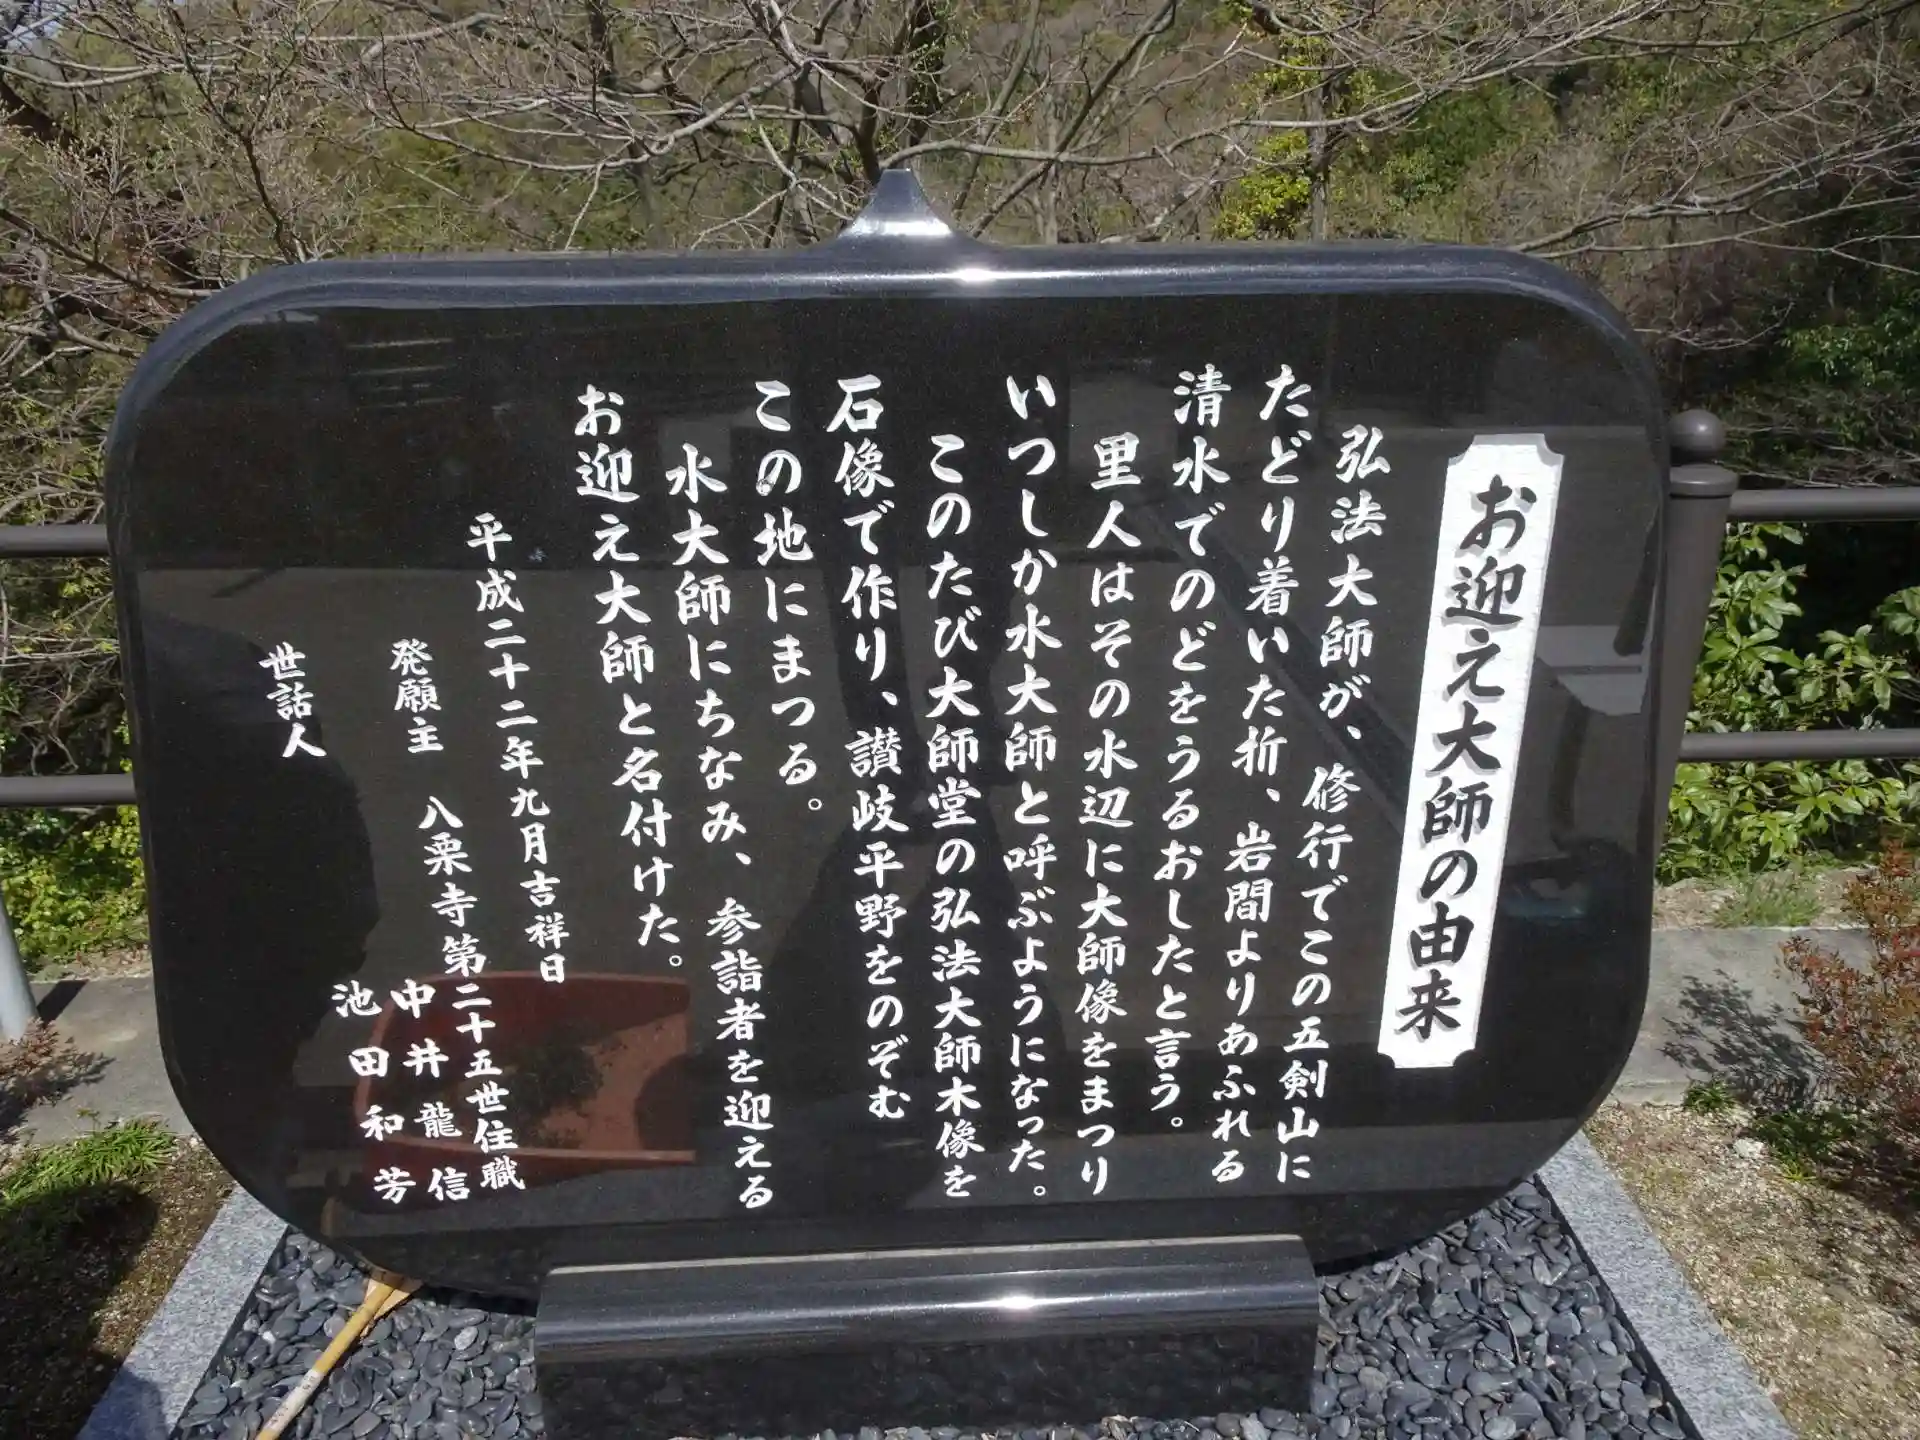 お迎え大師の由来
弘法大師が、修行でこの五剣山に
たどり着いた折、岩間よりあふれる
清水でのどをうるおしたと言う。
里人はその水辺に大師像をまつり
いつしか水大師と呼ぶようになった。
このたび大師堂の弘法大師木像を
石像で作り、讃岐平野をのぞむ
この地にまつる。
水大師にちなみ、参詣者を迎える
お迎え大師と名付けた。
平成二十二年九月吉祥日
発願主 八栗寺第二十五世住職
中井龍信
世話人 池田和芳